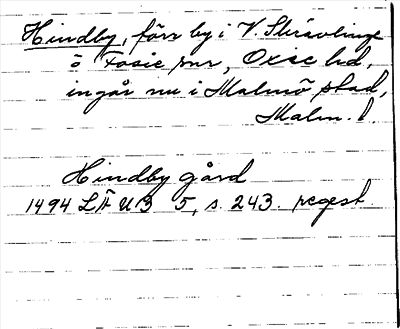 Hindby, förr by i V. Skrävlinge
o Fosie snr, Oxie hd,
ingår nu i Malmö stad,
Malm. l.
Hindby gård
1494 LÄUB 5, s. 243. regest